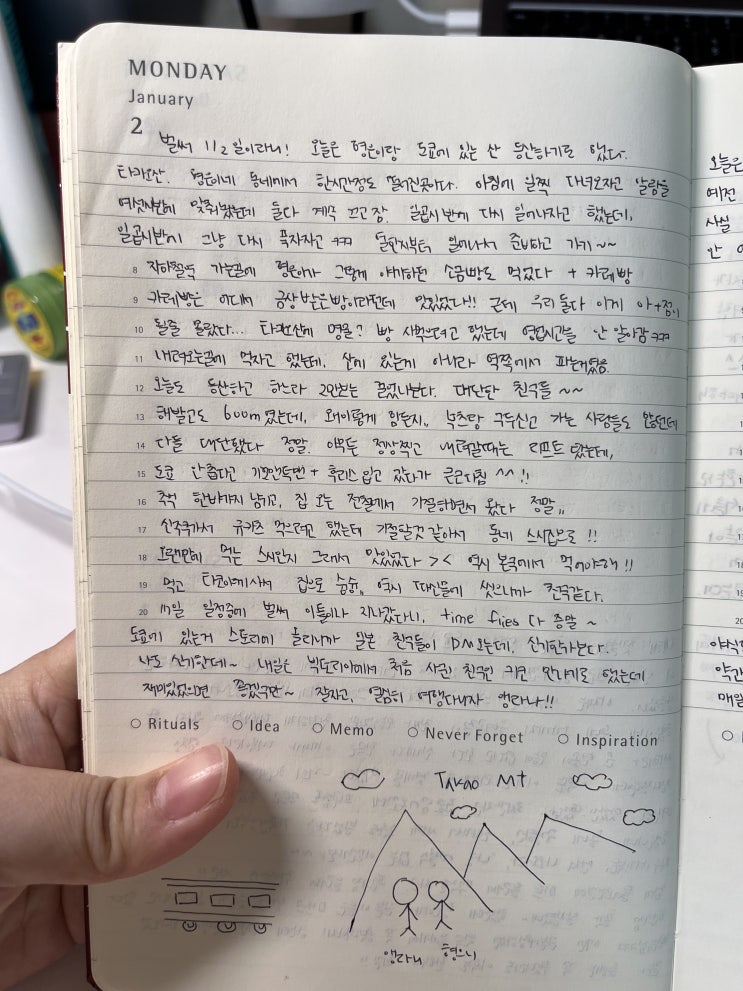 MONDAY
January
2
벌써 1/2일이라니! 오늘은 형은이랑 도쿄에 있는 산 등산하기로 했다.
타카오산. 형은이네 동네에서 한시간정도 떨어진곳이다. 아침에 일찍 다녀오자고 알람을
여섯시반에 맞춰놨는데 둘다 계속 끄고 잠. 일곱시반에 다시 일어나자고 했는데,
일곱시반에 그냥 다시 푹자자고 ㅋㅋㅋ 일어나서 준비하고 가기~~
8 지하철역 가는길에 형은이가 그렇게 얘기하던 소금빵도 먹었다 + 카레빵
9 카레빵은 어디서 금상받은빵이라던데 맛있었다!! 근데 우리둘다 이게 아+점이
10 될줄 몰랐다... 타카오산에 명물? 빵 사먹으려고 했는데 영업시간을 안 알아감 ㅋㅋㅋ
11 내려오는길에 먹자고 했는데, 산에 있는게 아니라 역쪽에서 파는거였음.
12 오늘도 등산하고 하느라 2만보는 걸었나보다. 대단한 친구들 ~~
13 해발고도 600m 였는데, 왜이렇게 힘든지.. 부츠랑 구두신고 가는 사람들도 있던데
14 다들 대단했다 정말. 아무튼 정상찍고 내려갈때는 리프트 탔는데,
15 도쿄 안춥다고 기모맨투맨 + 후리스 입고 갔다가 큰코다침 ^^!!
16 추억 한바가지 남기고, 집 오는 전철에서 기절하면서 왔다 정말,,
17 신주쿠가서 규카츠 먹으려고 했는데 기절할것 같아서 동네 스시집으로 !!
18 오랜만에 먹는 스시인지 그래서 맛있었다 >< 역시 본국에서 먹어야해!!
19 먹고 타코야끼사서 집으로 슝슝,, 역시 따신물에 씻으니까 천국같다.
20 11일 일정중에 벌써 이틀이나 지나갔다니, time flies 다 증말 ~
도쿄에 있는거 스토리에 올리니까 일본 친구들이 DM오는데, 신기한가보다.
나도 신기한데~ 내일은 빅토리아에서 처음 사귄 친구인 키언 만나기로 했는데
재미있었으면 좋겠구만~ 잘자고, 열심히 여행다니자 앵라니!!
Rituals Idea Memo Never Forget Inspiration
TAKAO MT
앵라니 형으니
오늘은
예전
사실
안
야식먹
약간
매일